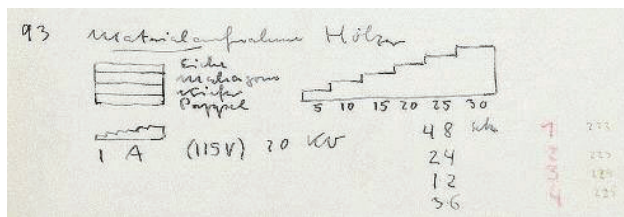 93 Materialaufnahme Hölzer
Eiche
Mahagoni
Kiefer
Pappel
5 10 15 20 25 30
1 A (115V) 20 KV
48 sek 1
24 2
12 3
36 4